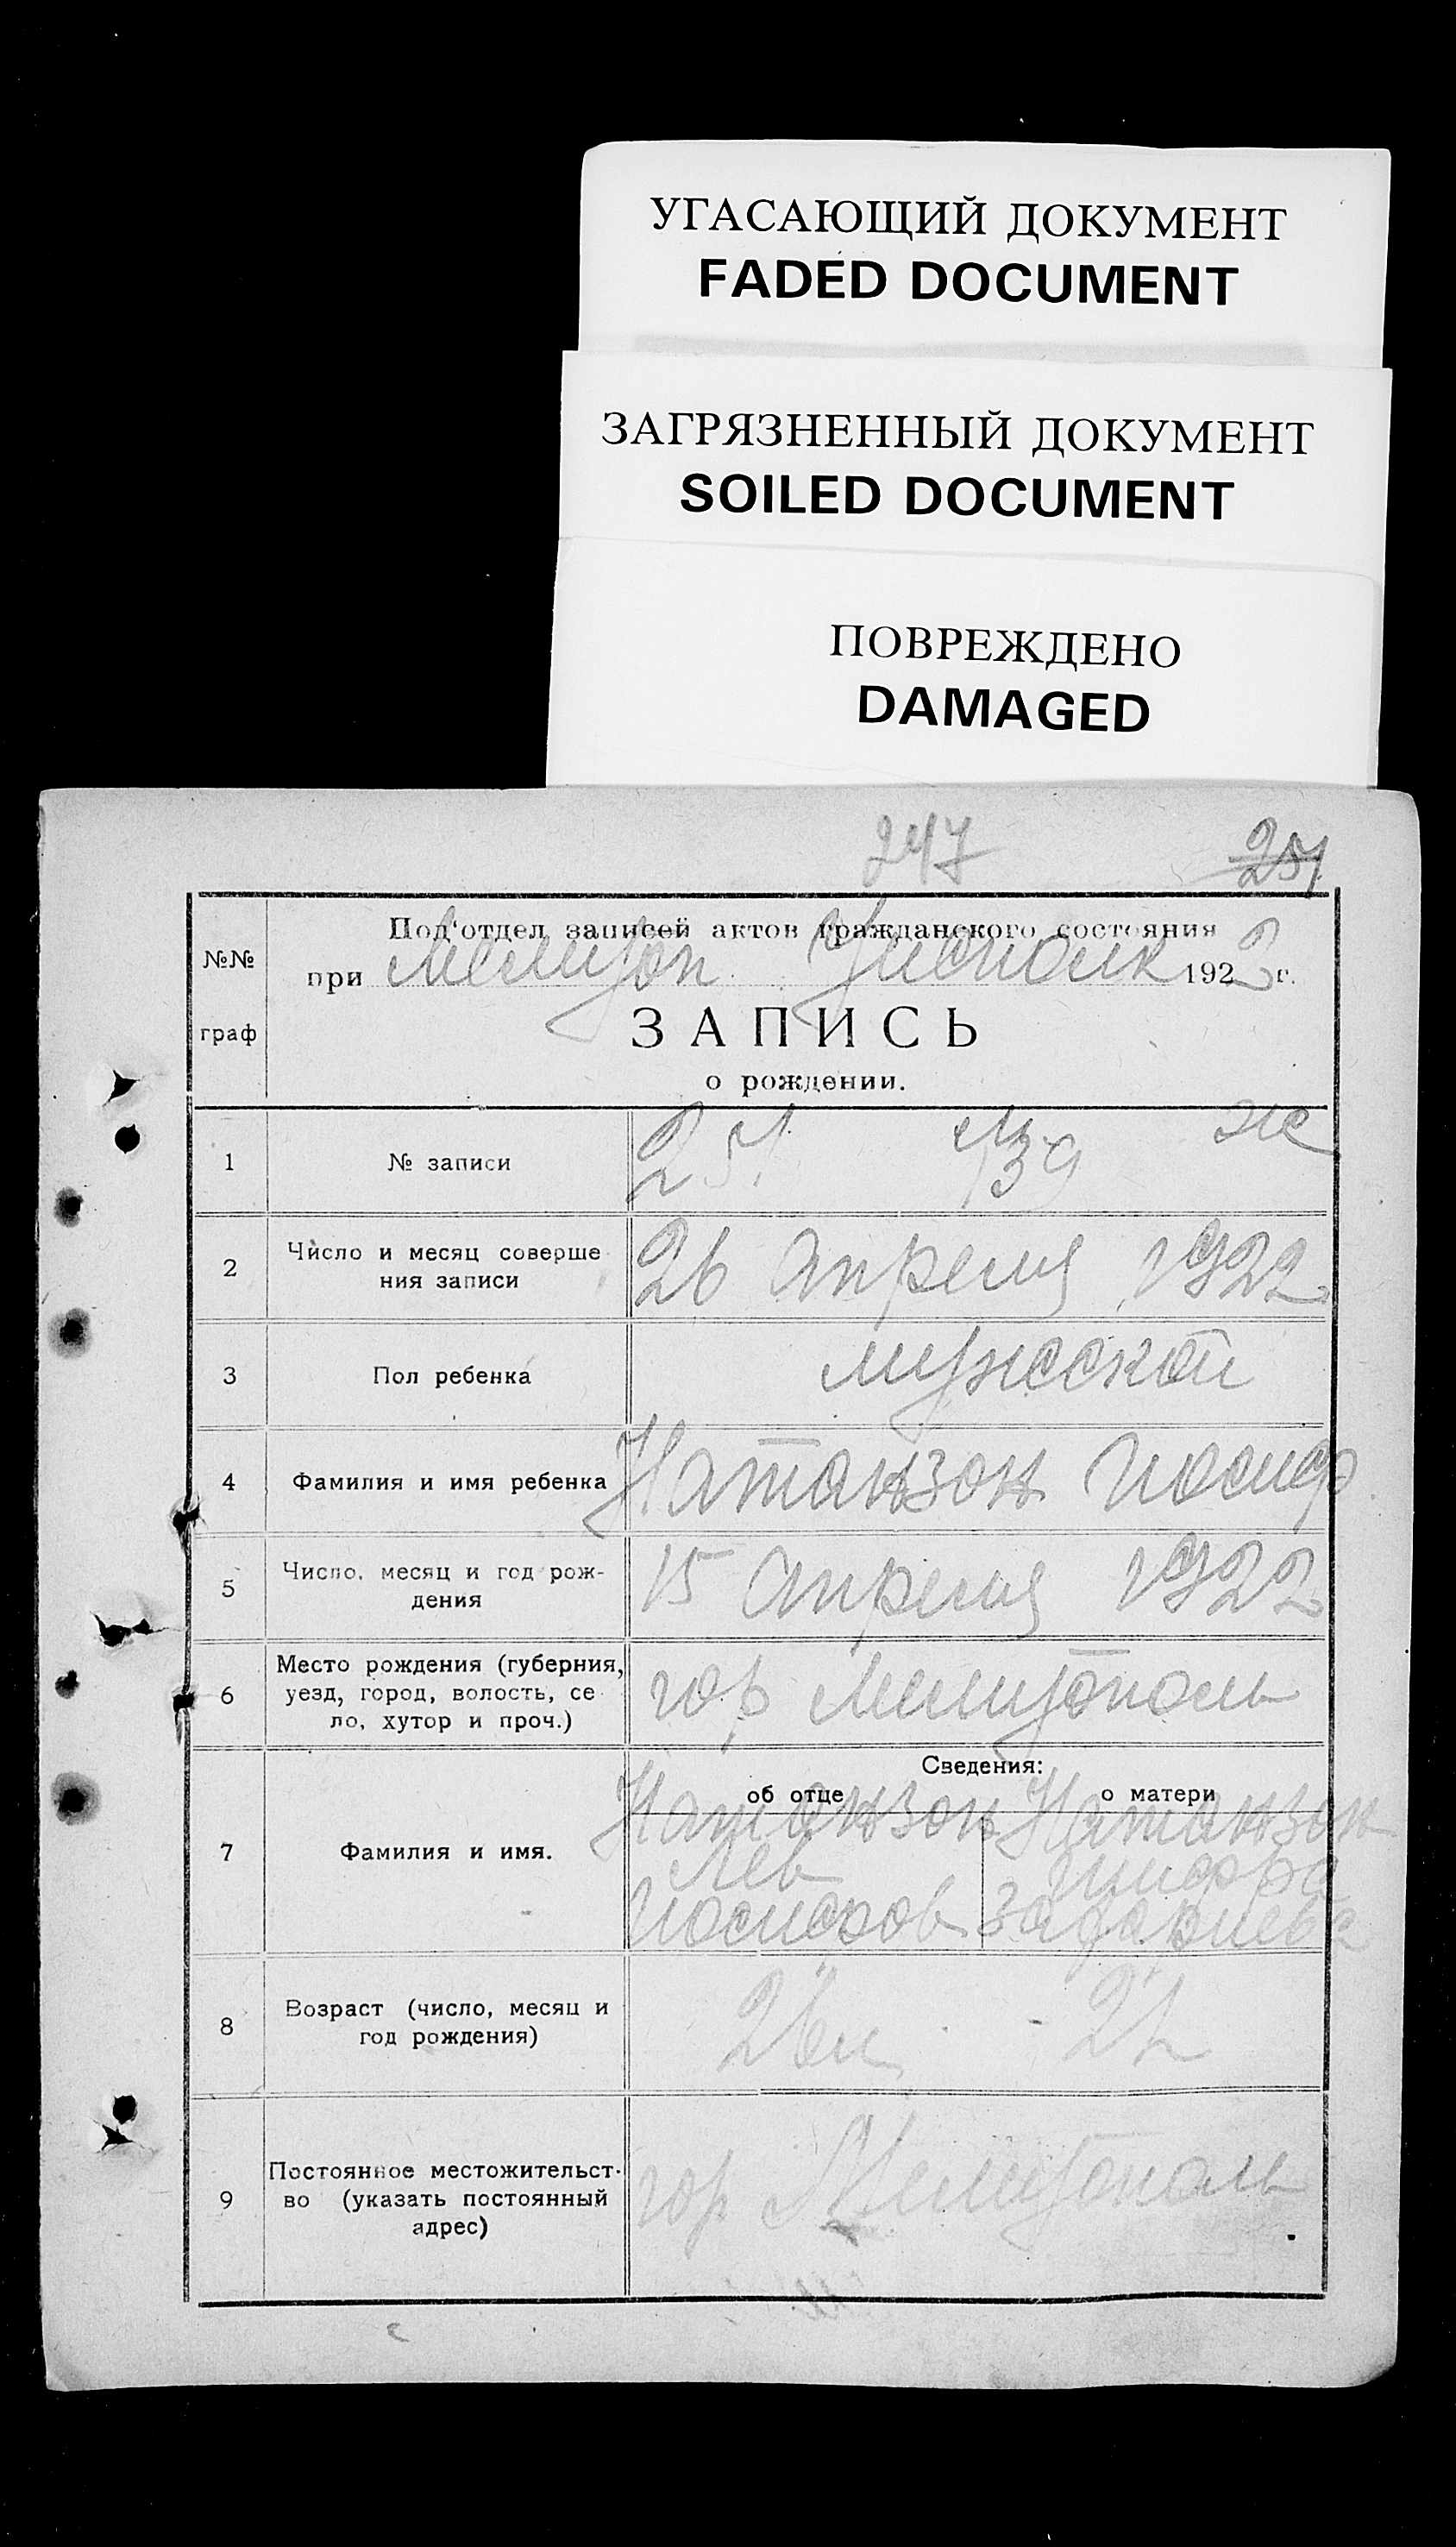 УГАСАЮЩИЙ ДОКУМЕНТ
FADED DOCUMENT
ЗАГРЯЗНЕННЫЙ ДОКУМЕНТ
SOILED DOCUMENT
ПОВРЕЖДЕНО
DAMAGED
247 251
№№
граф
Под'отдел записей актов гражданского состояния
при Мелитоп. 192 2 г.
ЗАПИСЬ
о рождении.
1 № записи 251 139
2 Число и месяц соверше
ния записи
26 Апреля 1922
3 Пол ребенка мужской
4 Фамилия и имя ребенка Натанзон Иосиф
5 Число, месяц и год рож-
дения
15 Апреля 1922
6 Место рождения (губерния,
уезд, город, волость, се
ло, хутор и проч.)
гор Мелитополь
Сведения:
об отце о матери
7 Фамилия и имя.
Натанзон Натанзон
Лев
Иосифов
8 Возраст (число, месяц и
год рождения)
26 22
9 Постоянное местожительст-
во (указать постоянный
адрес)
гор. Мелитополь